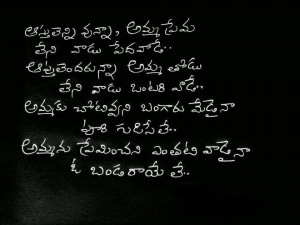 ఆస్తులెన్ని వున్నా, అమ్మ ప్రేమ
లేని వాడు పేదవాడే..
ఆప్తులెందరున్నా అమ్మ తోడు
లేని వాడు ఒంటరి వాడే..
అమ్మకు చోటివ్వని బంగారు మేడైనా
పూరి గుడిసేతే..
అమ్మను ప్రేమించని ఎంతటి వాడైనా
ఓ బండరాయే తే..